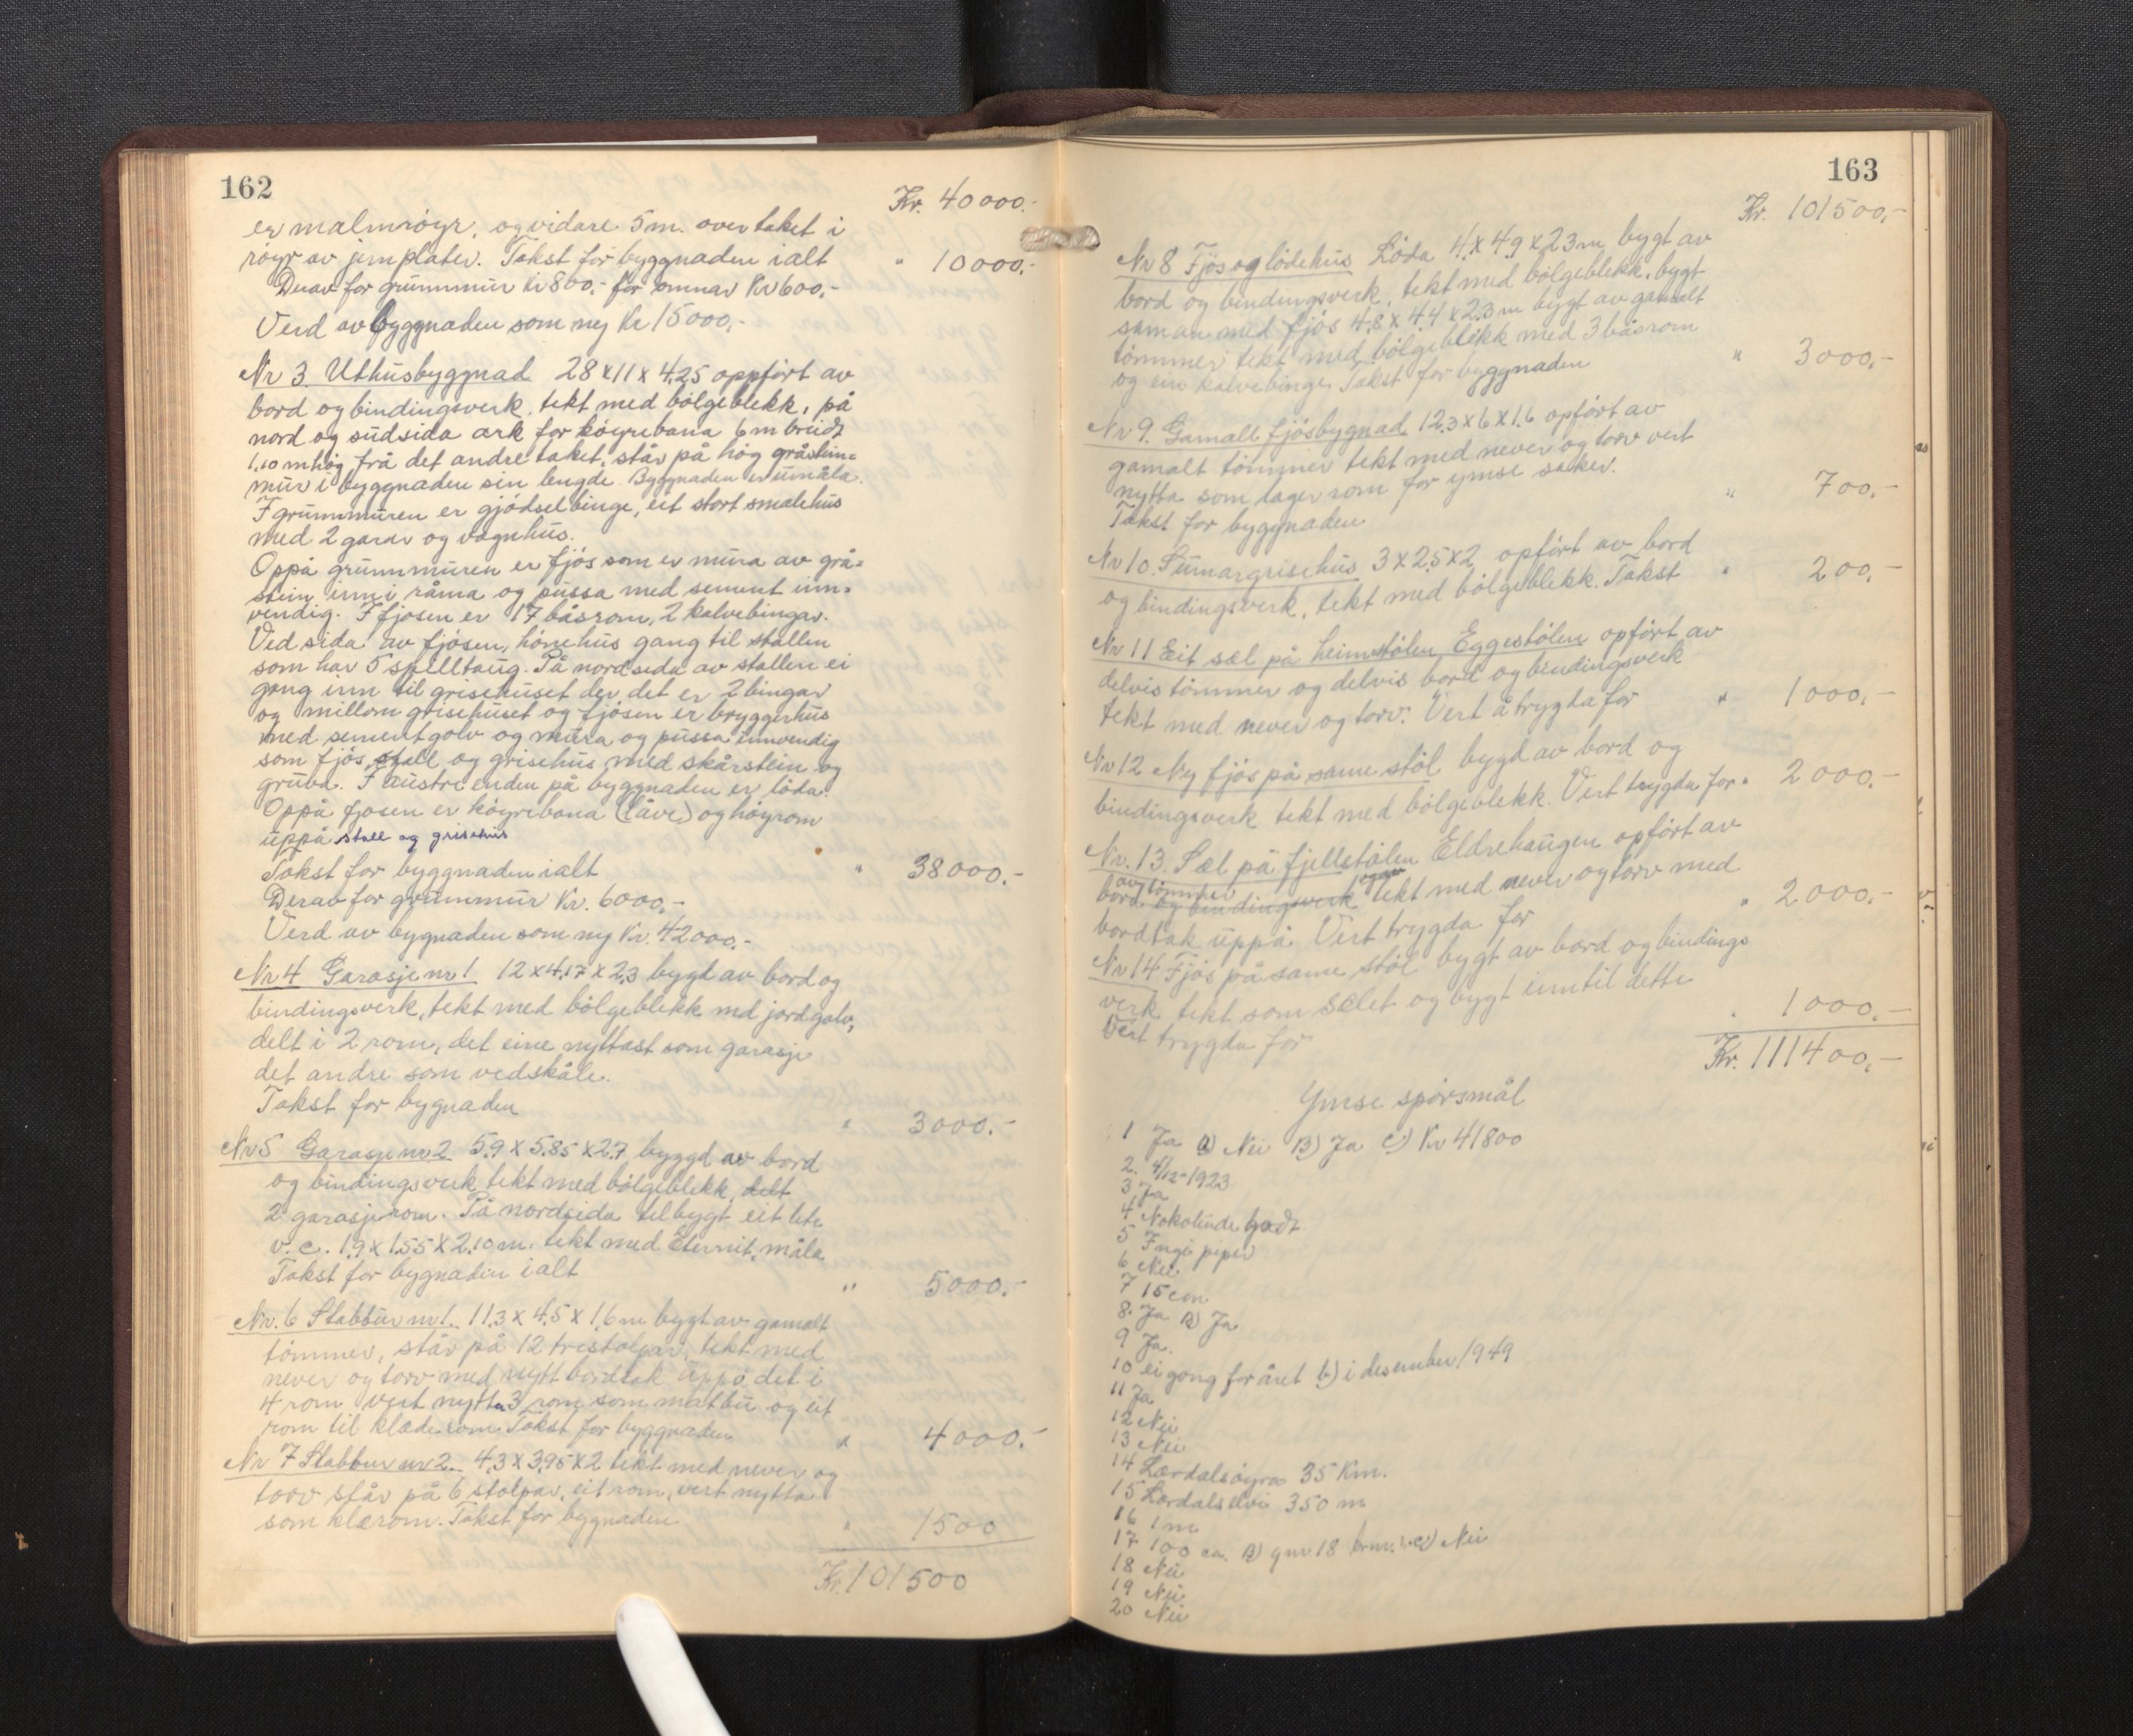 162
Kr. 40000.-
er malmröyr, og vidare 5 m. over taket i
röyr av jernplater. Takst for byggnaden ialt " 10000.-
Derav for grunnmur kr 800,- for omnar Kr 600,-
Verd av byggnaden som ny Kr 15000,-
Nr 3. Uthusbyggnad 28 x 11 x 4,25 oppfört av
bord og bindingsverk, tekt med bölgeblekk, på
nord og sudsida ark for köyrebana 6 m breidt
1,10 m hög frå det andre taket, står på hög gråstein=
mur i byggnaden sin lengde. Byggnaden er umåla.
I grunnmuren er gjödselbinge, eit stort smalehus
med 2 garar og vognhus.
Oppå grunnmuren er fjös som er mura av grå=
stein inni råma og pussa med sement inn=
vendig. I fjosen er 17 båsrom, 2 kalvebingar.
Ved sida av fjösen, hönehus gang til stallen
som har 5 spelltaug. På nordsida av stallen ei
gong inn til grisehuset der det er 2 bingar
og millom grisehuset og fjösen er bryggerhus
med sementgolv og mura og pussa innvendig
som fjös, stall og grisehus med skårstein og
gruve. I austre enden på byggnaden er löda.
Oppå fjosen er köyrebana (låve) og höyrom
uppå stall og grisehus
Takst for byggnaden ialt " 38000.-
Derav for grunnmur Kr. 6000,-
Verd av bygnaden som ny Kr. 42000.-
Nr 4 Garasje nr 1 12 x 4,17 x 2,3 bygt av bord og
bindingsverk, tekt med bölgeblekk md jordgolv,
delt i 2 rom, det eine nyttast som garasje
det andre som vedskåle.
Takst for bygnaden " 3000.-
Nr 5 Garasje nr 2 5,9 x 5,85 x 2,7 byggd av bord
og bindingsverk tekt med bölgeblekk, delt
2 garasjerom. På nordsida tilbygt eit lite
v.c. 1,9 x 1,55 x 2,10 m. tekt med Eternit, måla
Takst for bygnaden ialt " 5000.-
Nr. 6 Stabbur nr 1. 11,3 x 4,5 x 1,6 m bygt av gamalt
tömmer, står på 12 trestolpar, tekt med
never og torv med nytt bordtak uppå, delt i
4 rom vert nytta 3 rom som matbu og eit
rom til klæderom. Takst for byggnaden " 4000.-
Nr 7 Stabbur nr 2. 4,3 x 3,95 x 2 tekt med never og
torv står på 6 stolpar, eit rom, vert nytta
som klærom. Takst for bygnaden " 1500
Kr. 101500
163
Kr. 101500,-
Nr 8 Fjös og lödehus Löda 4 x 4,9 x 2,3 m bygt av
bord og bindingsverk, tekt med bölgeblekk, bygt
saman med fjös 4,8 x 4,4 x 2,3 m bygt av gamalt
tömmer tekt med bölgeblekk med 3 båsrom
og ein kalvebinge. Takst for byggnaden " 3000,-
Nr 9. Gamall fjösbygnad 12,3 x 6 x 1,6 opfört av
gamalt tömmer tekt med never og torv vert
nytta som lagerrom for ymse saker.
Takst for byggnaden " 700,-
Nr 10. Sumargrisehus 3 x 2,5 x 2 opfört av bord
og bindingsverk, tekt med bölgeblekk. Takst " 200,-
Nr 11 Eit sæl på heimstölen Eggestölen opfört av
delvis tömmer og delvis bord og bindingsverk
tekt med never og torv. Vert å trygda for " 1000,-
Nr 12 Ny fjös på same stöl bygd av bord og
bindingsverk tekt med bölgeblekk. Vert trygda for " 2000.-
Nr. 13. Sæl på fjellstölen Eldrehaugen opfört av
av tömmer
bord og bindingsverk tekt med never og torv med
bordtak uppå. Vert trygda for " 2000,-
Nr 14 Fjös på same stöl bygt av bord og bindings
verk tekt som sælet og bygt inntil dette
Vert trygda for " 1000.-
Kr. 111400,-
Ymse spörsmål
1 Ja a) Nei B) Ja c) Kr 41800
2. 4/12-1923
3 Ja
4 Nokolunde godt
5 Ingi piper
6 Nei
7 15 cm
8. Ja B) Ja
9 Ja.
10 ei gong for året b) i desember 1949
11 Ja
12 Nei
13 Nei
14 Lærdalsöyra 35 Km.
15 Lærdalselvi 350 m
16 1 m
17 100 ca. B) gnr 18 brnr. 1. c) Nei
18 Nei
19 Nei
20 Nei